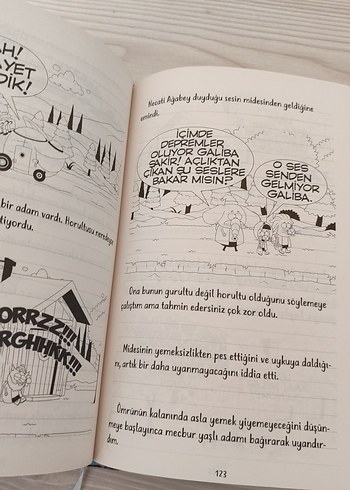 AH!
AYET
DİK!
bir adam vardı. Horultusu neredeyse
tiyordu.
ORRZZ!!!
RGHHHK!!!
Necati Ağabey duyduğu sesin midesinden geldiğine
emindi.
İÇİMDE
DEPREMLER
OLUYOR GALİBA
ŞAKİR! AÇLIKTAN
ÇIKAN ŞU SESLERE
BAKAR MISIN?
O SES
SENDEN
GELMİYOR
GALİBA.
Ona bunun gurultu değil horultu olduğunu söylemeye
çalıştım ama tahmin edersiniz çok zor oldu.
Midesinin yemeksizlikten pes ettiğini ve uykuya daldığı-
nı, artık bir daha uyanmayacağını iddia etti.
Ömrünün kalanında asla yemek yiyemeyeceğini düşün-
meye başlayınca mecbur yaşlı adamı bağırarak uyandır-
dım.
123